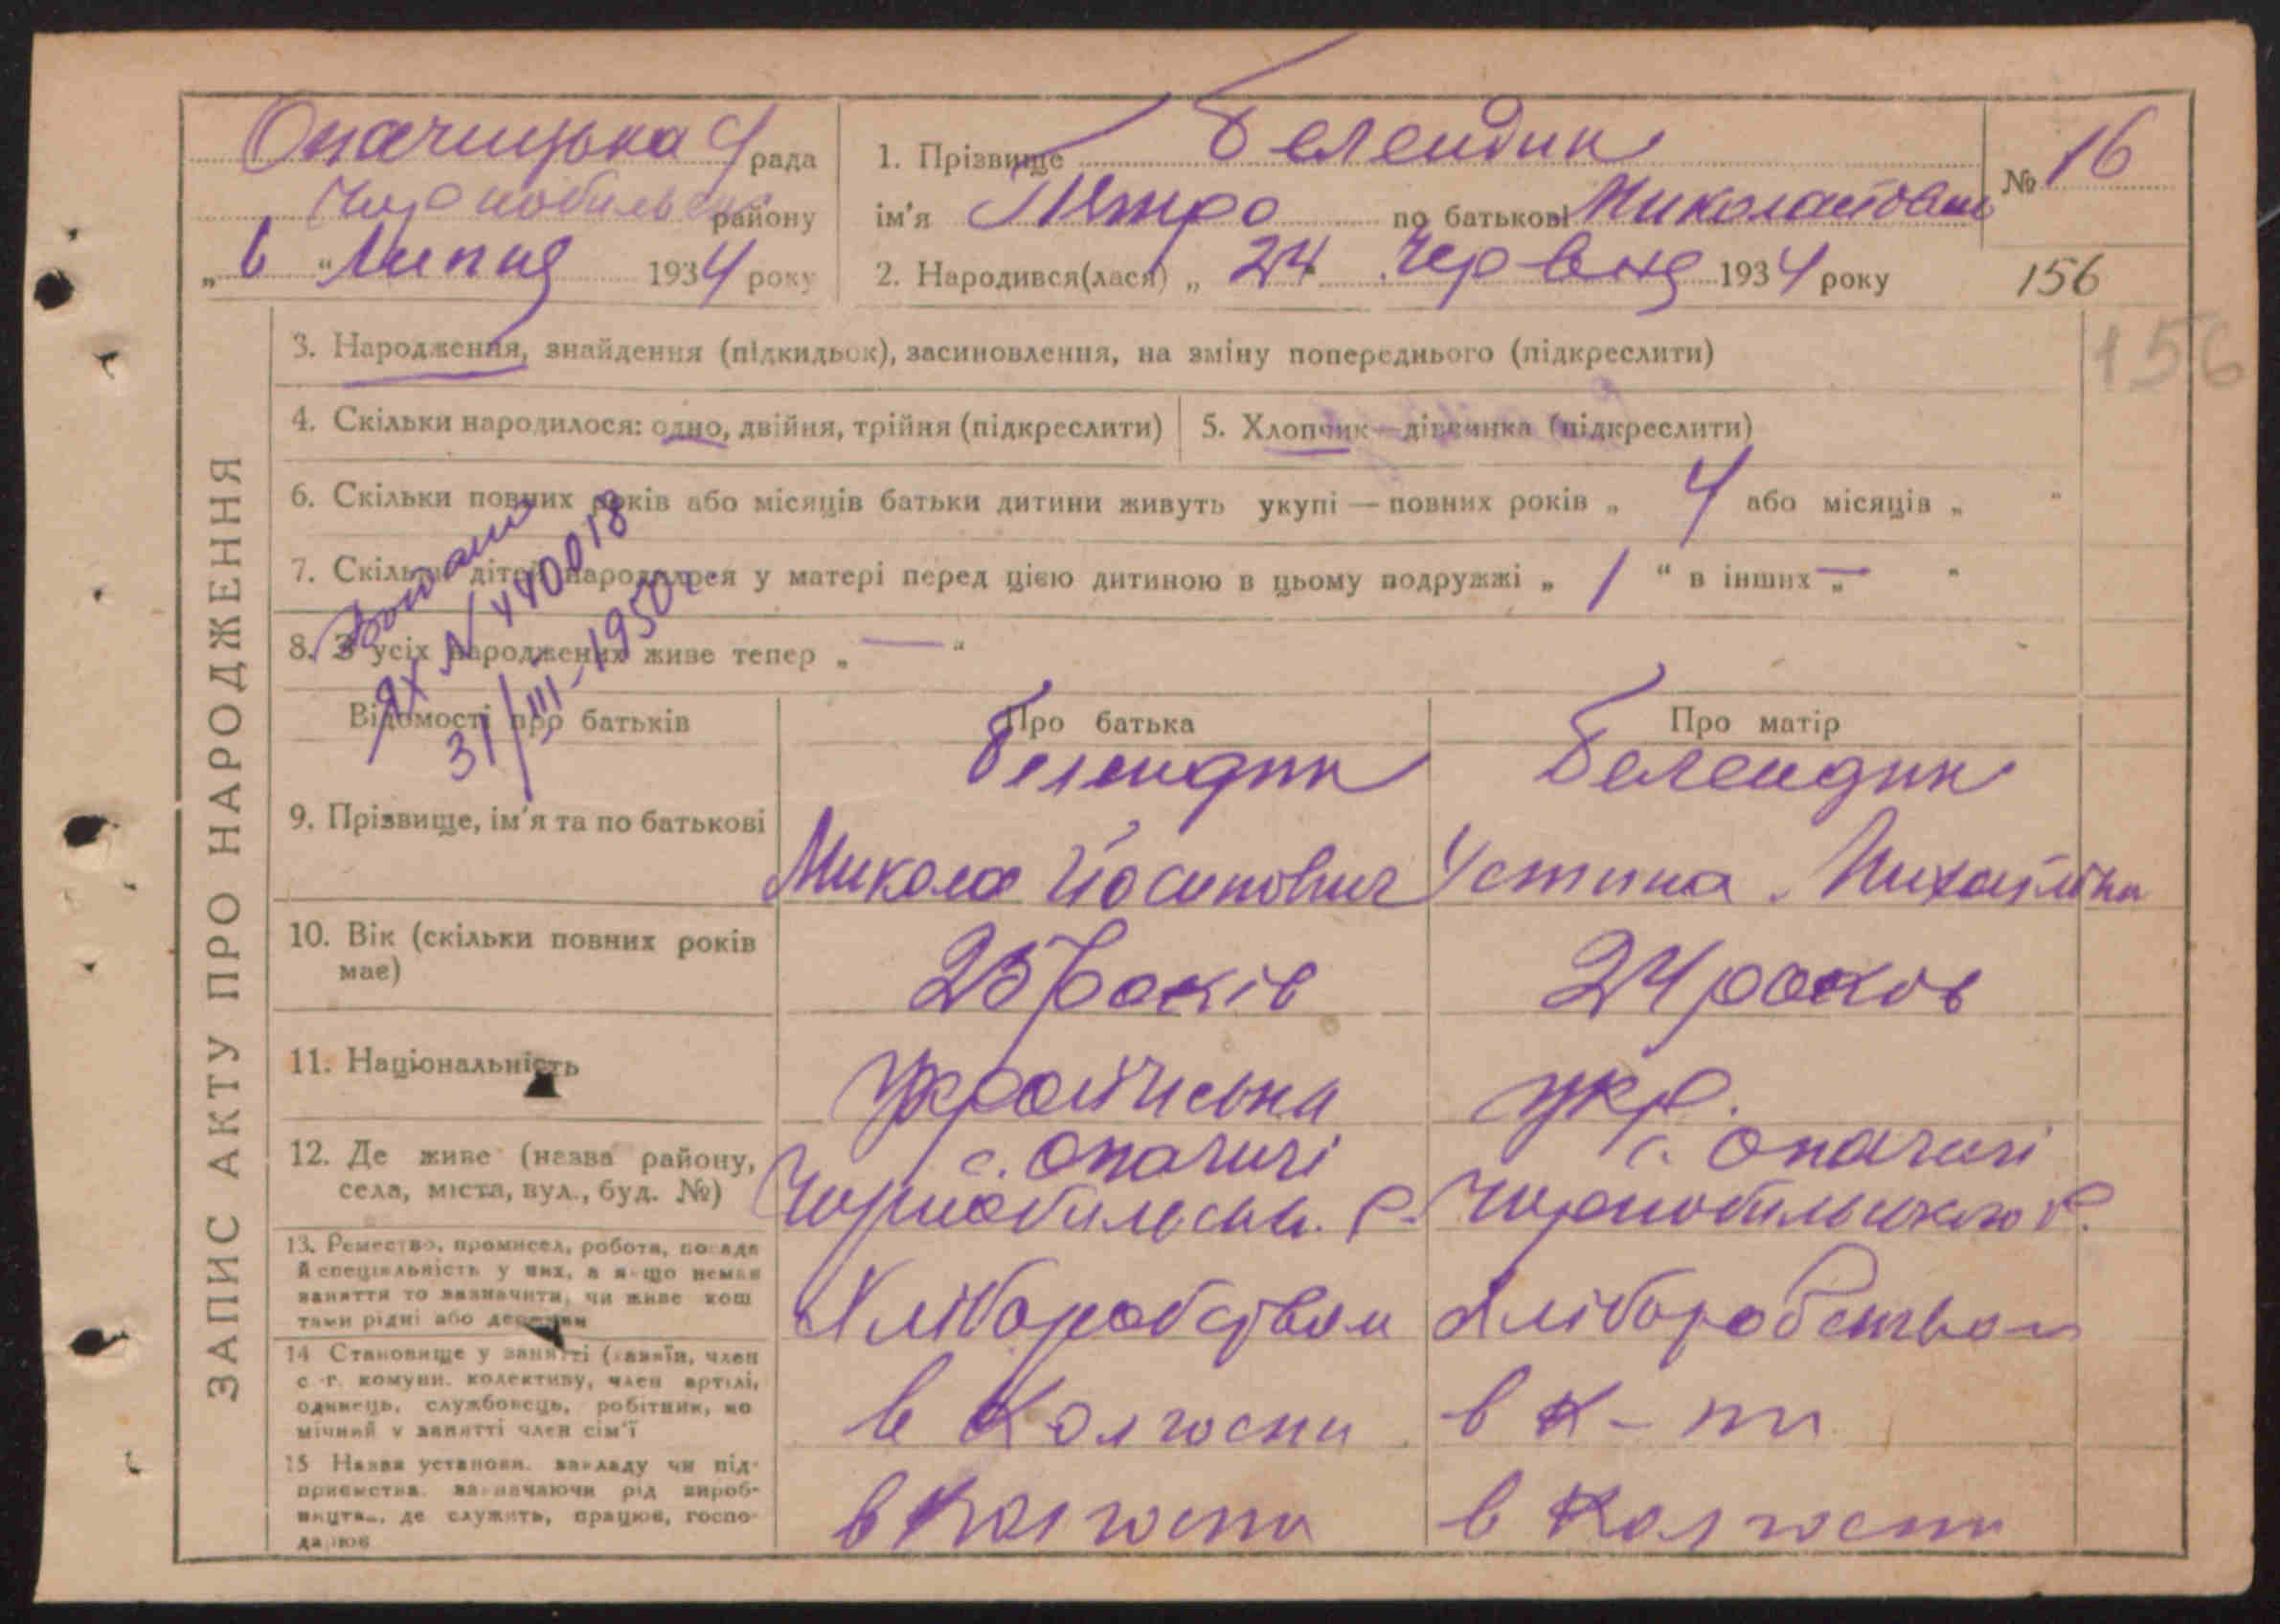 Опачицька с/рада
Чорнобильськ району
„ 6 “ Липня 1934 року
1. Прізвище Белендик
ім'я Петро по батькові Миколайович
2. Народився(лася) „ 24 Червня 1934 року
№ 16
156
156
ЗАПИС АКТУ ПРО НАРОДЖЕННЯ
3. Народження, знайдення (підкидьок), засиновлення, на зміну попереднього (підкреслити)
4. Скільки народилося: одно, двійня, трійня (підкреслити)
5. Хлопчик—дівчинка (підкреслити)
6. Скільки повних років або місяців батьки дитини живуть укупі — повних років „ 4 або місяців „ "
7. Скільки дітей народилося у матері перед цією дитиною в цьому подружжі „ 1 “ в інших „ — "
8. З усіх народжених живе тепер „ — “
ЯХ № 440018
31/III-1950г
Відомості про батьків
Про батька
Про матір
9. Прізвище, ім'я та по батькові
Белендик
Микола Йосипович
Белендик
Устина Михайлівна
10. Вік (скільки повних років
має)
25 Років
24 роков
11. Національність
Українська
укр.
12. Де живе (назва району,
села, міста, вул., буд. №)
с. Опачичі
Чорнобильськ. Р.
с. Опачичі
Чорнобильського Р.
13. Ремество, промисел, робота, посада
й спеціяльність у них, а якщо немає
заняття то зазначити, чи живе кош
тами рідні або держави
Хліборобством
Хліборобством
14 Становище у занятті (хазяїн, член
с.-г. комуни. колективу, член артілі,
одинець, службовець, робітник, по
мічний у занятті член сім'ї
в Колгоспи
в к-пи
15 Назва установи. закладу чи під-
приємства. зазначаючи рід вироб-
ництва, де служить, працює, госпо-
дарює
в Колгоспи
в Колгоспи